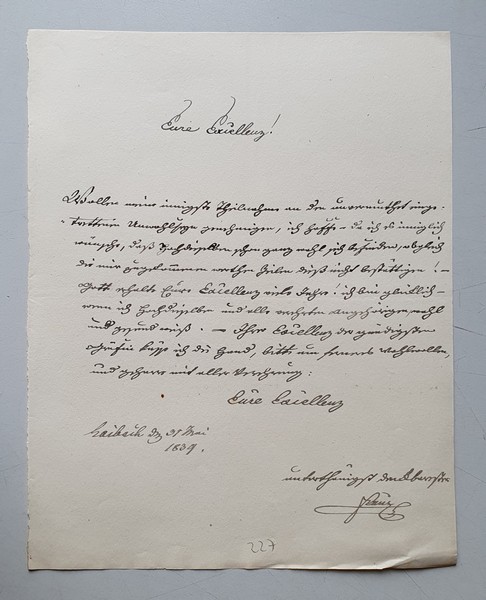 Eure Excellenz!
Wollen meine innigste Theilnahme an der unvermuthet einge-
tretenen Unwohlseyn genehmigen, ich hoffe – da ich es inniglich
wünsche, daß Hochdieselben schon ganz wohl sich befinden, obgleich
die mir zugekommenen werthen Zeilen dieß nicht bestättigen! –
Gott erhalte Eure Excellenz viele Jahre! ich bin glücklich –
wenn ich Hochdieselbe und alle verehrten Angehörigen wohl
und gesund weiß. – Ihrer Excellenz der gnädigsten
Gräfin küße ich die Hand, bitte um ferneres Wohlwollen,
und geharre mit aller Verehrung:
Eure Excellenz
Laibach den 31 Mai
1839.
unterthänigst
227